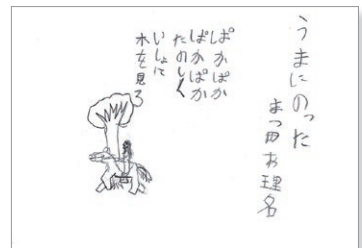 うまにのった
まつ田お理名
ぱかぱか
ぱかぱか
たのしく
いしょに
木を見る